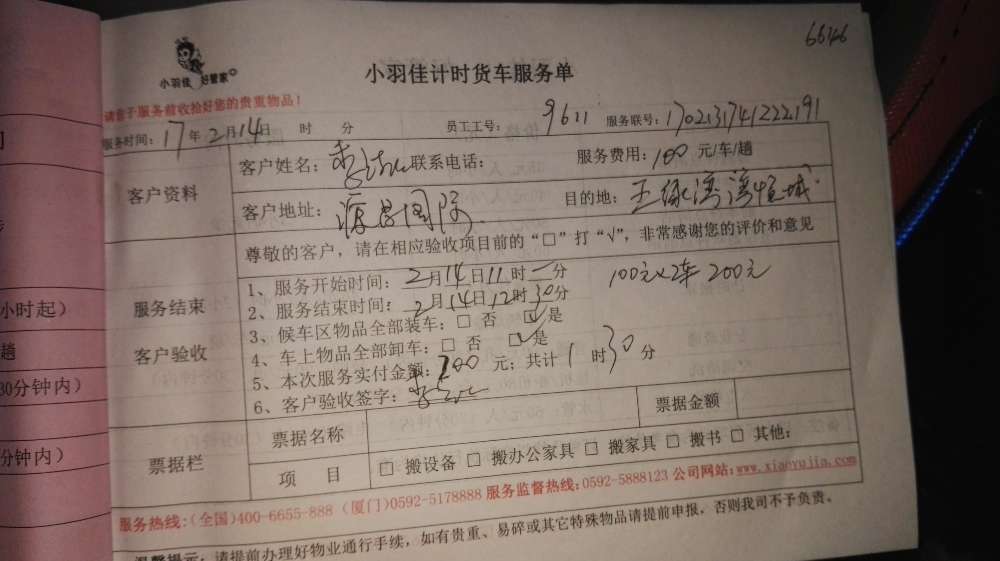 66746
小羽佳 好管家
小羽佳计时货车服务单
请您于服务前收拾好您的贵重物品!
服务时间: 17年2月14日 时 分 员工工号: 9611 服务联号: 170213174122219
客户资料
客户姓名: 李 联系电话: 服务费用: 100元/车/趟
客户地址: 源昌国际 目的地:
尊敬的客户,请在相应验收项目前的“□”打“√”,非常感谢您的评价和意见
服务结束
客户验收
1、服务开始时间: 2月14日11时 分
100元×2车 200元
2、服务结束时间: 2月14日12时30分
3、候车区物品全部装车: □ 否 ☑ 是
4、车上物品全部卸车: □ 否 ☑ 是
5、本次服务实付金额: 200元; 共计1时30分
6、客户验收签字: 李
票据栏
票据名称 票据金额
项 目 □ 搬设备 □ 搬办公家具 □ 搬家具 □ 搬书 □ 其他:
服务热线:(全国)400-6655-888 (厦门)0592-5178888 服务监督热线:0592-5888123 公司网站:www.xiaoyujia.com
温馨提示: 请提前办理好物业通行手续,如有贵重、易碎或其它特殊物品请提前申报,否则我司不予负责。
小时起)
趟
30分钟内)
分钟内)